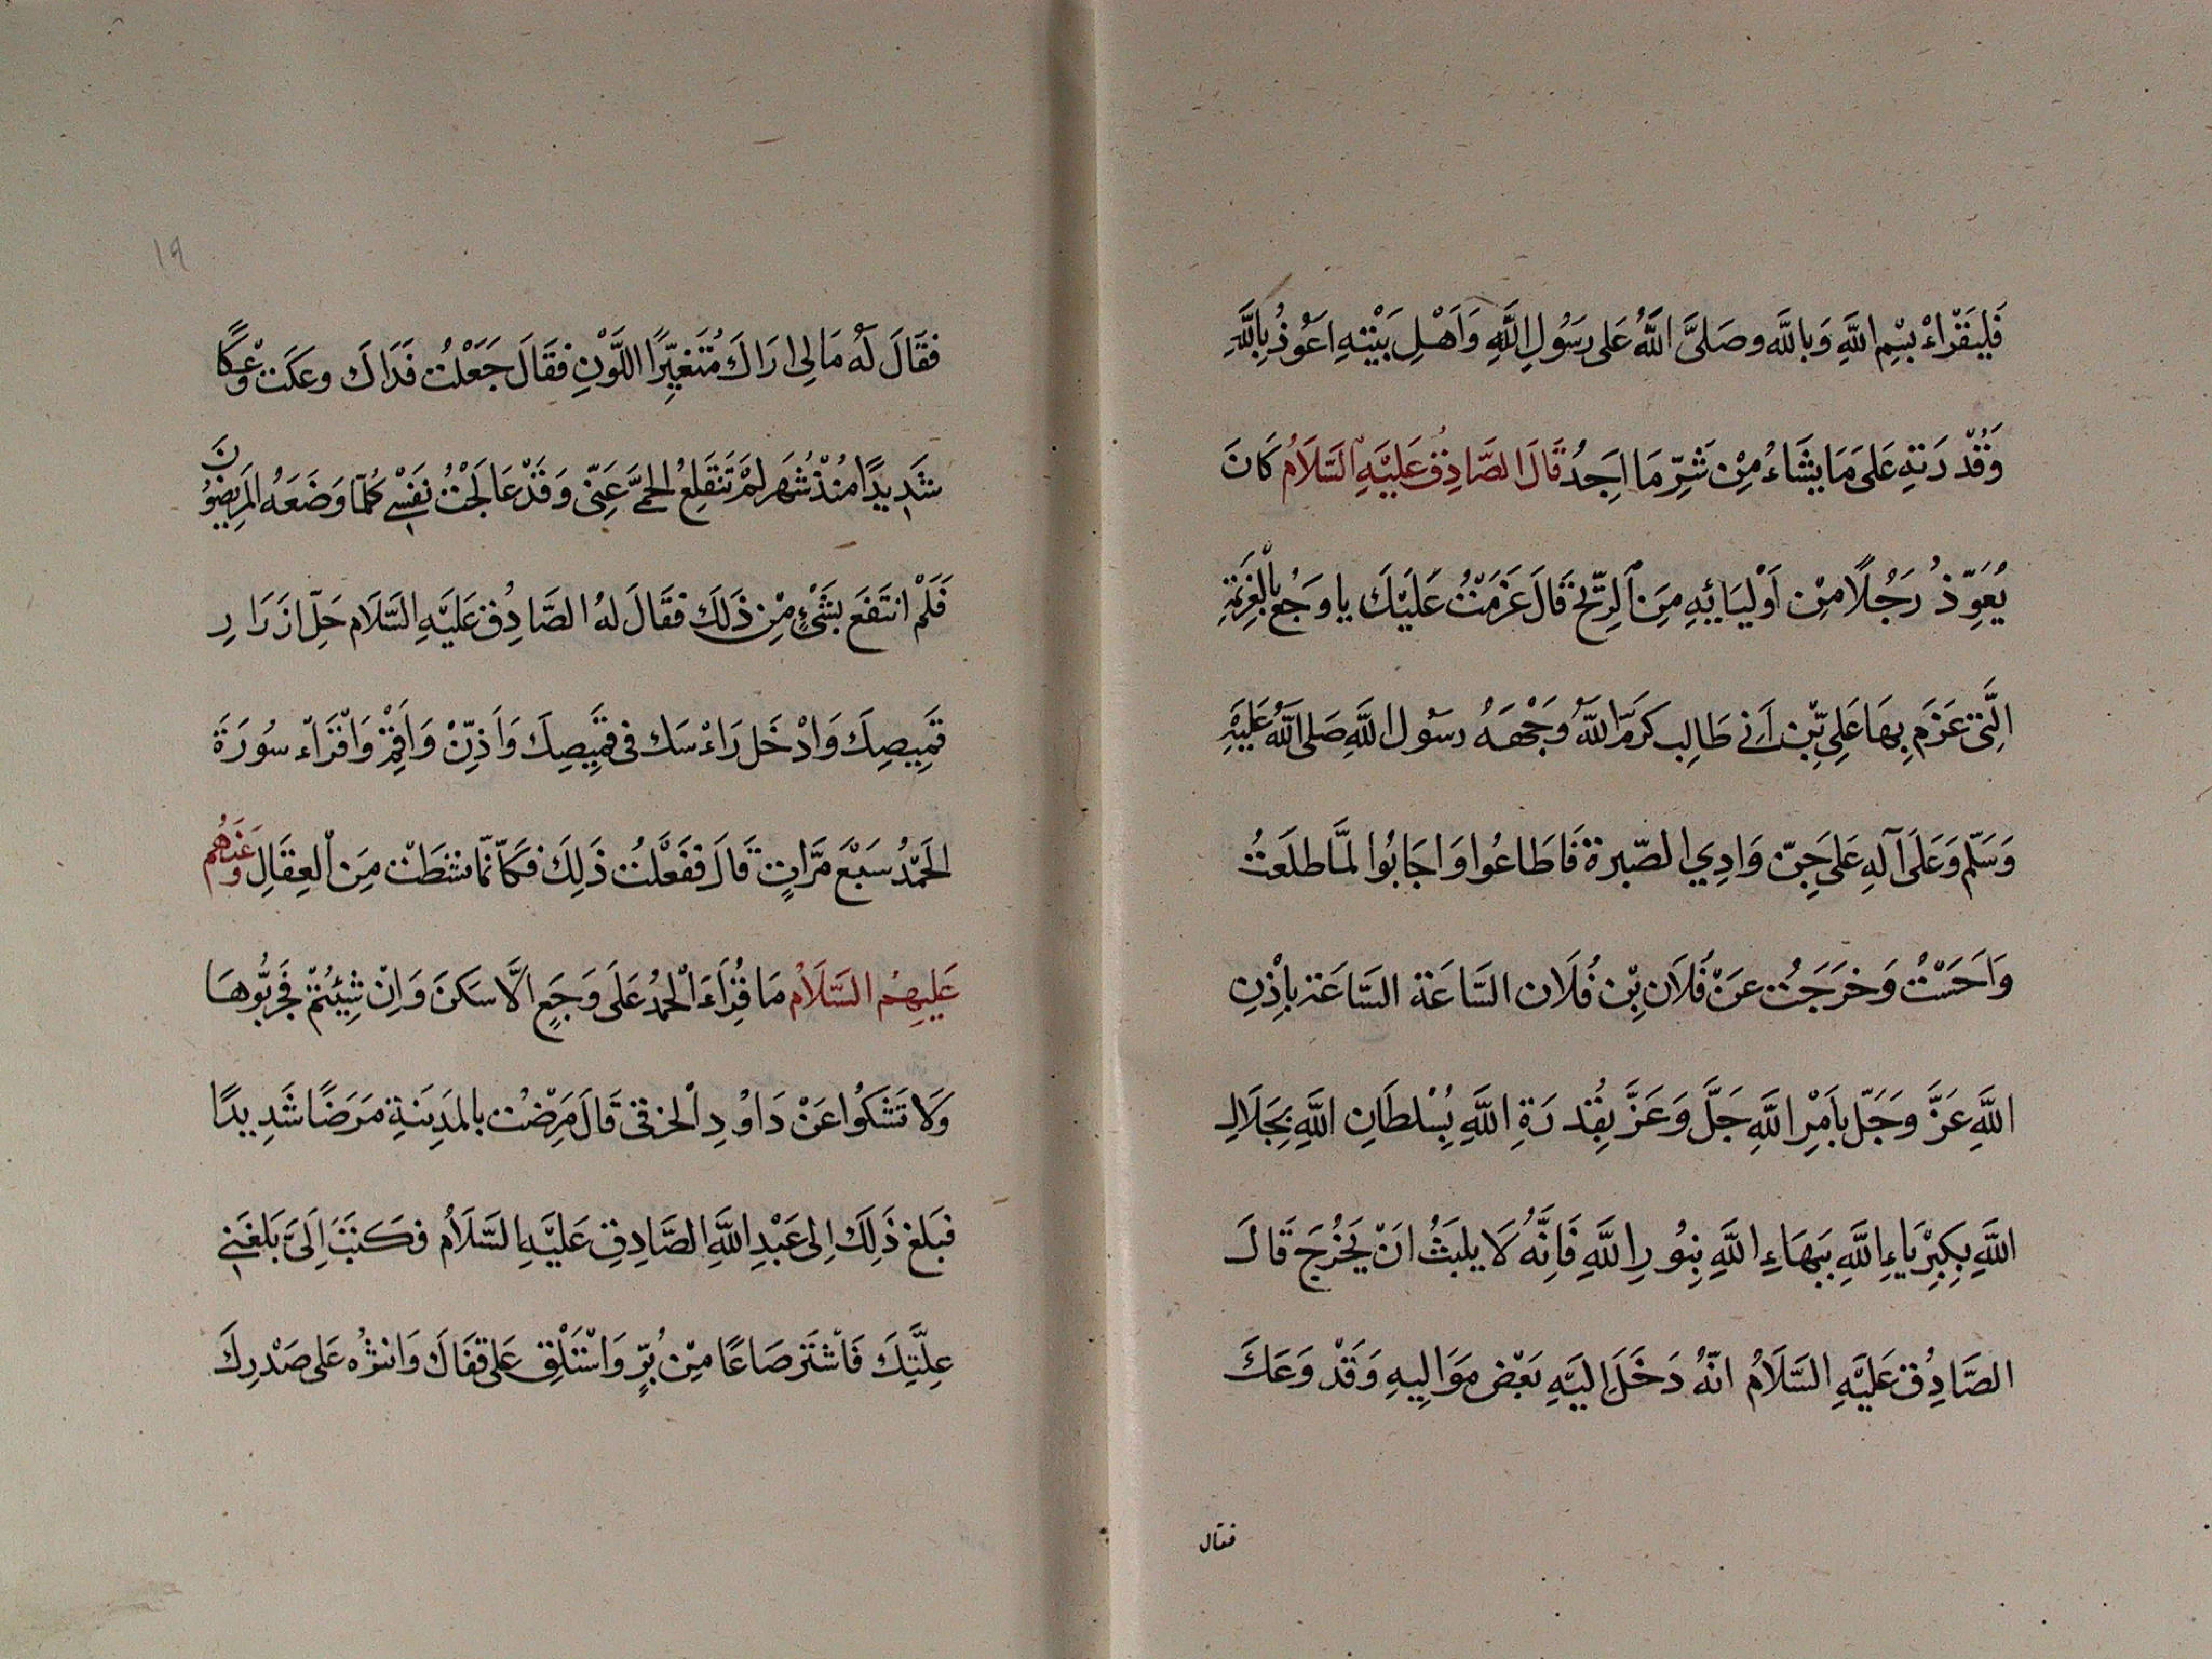 فَلْيَقْرَاءْ بِسْمِ اللَّهِ وَبِاللَّه وصَلىَّ اللَّهُ عَلى رَسُولِ اللَّهِ وَاَهْلِ بَيْتِهِ اَعُوذُ بِاللَّهِ
وَقُدْرَتِهِ عَلىَ مَا يَشَاءُ مِنْ شَرِّ مَا اَجِدُ قَالَ الصَّادِقُ عَلَيْهِ السَّلَامُ كَانَ
يُعَوِّذُ رَجُلًا مِنْ اَوْلِيَائِهِ مِنَ الرِّيْحِ قَالَ عَزَمْتُ عَلَيْكَ يا وَجُعُ بِالْعَزِيْمَةِ
الَّتِى عَزَمَ بِهَا عَلِىّ بْن اَبِى طَالِب كَرَّمَ اللَّهُ وَجْهَهُ رسُول اللَّهِ صَلى اللَّهُ عَلَيْهِ
وَسَلّم وَعَلَى آلِهِ عَلىَ جِنّ وَادِي الصّبرة فَاطَاعُوا وَاجَابُوا لَمَّا طلَعَتُ
وَاَحَسَتْ وَخرَجَتُ عَنْ فُلَان بِنْ فُلَان السَّاعَة السَّاعَة بِاِذْنِ
اللَّهِ عَزَّ وَجَلّ بِاَمْرِ اللَّهِ جَلَّ وَعَزَّ بِقُدْرَةِ اللَّهِ بِسُلطَانِ اللَّهِ بِجَلَالِ
اللَّهِ بِكِبْرِيَاءِ اللَّهِ بِبهَاءِ اللَّهِ بِنُورِ اللَّهِ فَاِنَّهُ لَا يلبَثُ انْ يَخْرُجَ قَالَ
الصَّادِقُ عَلَيْهِ السَّلَامُ انّهُ دَخَلَ اِلَيْهِ بَعْض مَوَالِيهِ وَقَدْ وَعَكَ
فقال
١٩
فقَالَ لَهُ مَا لِى ارَاكَ مُتَغَيِّرًا اللَّوْنِ فقَالَ جَعَلْتُ فَدَاكَ وعكَت وَعْكًا
شَدِيدًا مُنْذُ شُهَر لَمْ تَنقَلِعُ الحمىَّ عَنِّى وَقَدْ عَالَجْتُ نفَسْى كُلّمَا وَضَعَهُ المَرِيضُونَ
فَلَمْ انتَفَعَ بشَىْءٍ مِنْ ذَلَكَ فقَالَ لَهُ الصَّادِقُ عَلَيْهِ السَّلَام حَلّ ازَرَارِ
قَمِيصِكَ وَادْخَل رَاءْسَك فى قَمِيصِكَ وَاَذِّنْ وَاَقِمْ وَاقْرَاء سُورَةَ
الحَمْدُ سَبْعَ مَرَّاتٍ قَالَ ففَعَلْتُ ذَلِكَ فكَاَنَّمَا نشَطَتْ مِنَ الْعِقَالِ وَعَنهُم
عَلَيهِمُ السَّلَامُ مَا قُرَاءَ الْحَمْدُ عَلَى وَجَعٍ الَّا سَكَنَ وَاِنْ شِيْئُتمْ فَجَرِّبُوهَا
وَلَا تَشَكُوا عَنْ دَاوُدِ الْخرقى قَالَ مَرِضْت بالمَدِينَةِ مَرَضًا شَدِيدًا
فَبَلغ ذَلِكَ اِلى عَبْدِ اللَّهِ الصَّادِقِ عَلَيْهِ السَّلَامُ فكَتَبَ اِلَىَّ بَلغَنِى
عِلَّتِكَ فَاشْتَر صَاعًا مِنْ بُرٍّ وَاسْتَلْقِ عَلى قفَاكَ وَانثُرْهُ عَلى صَدْرِكَ